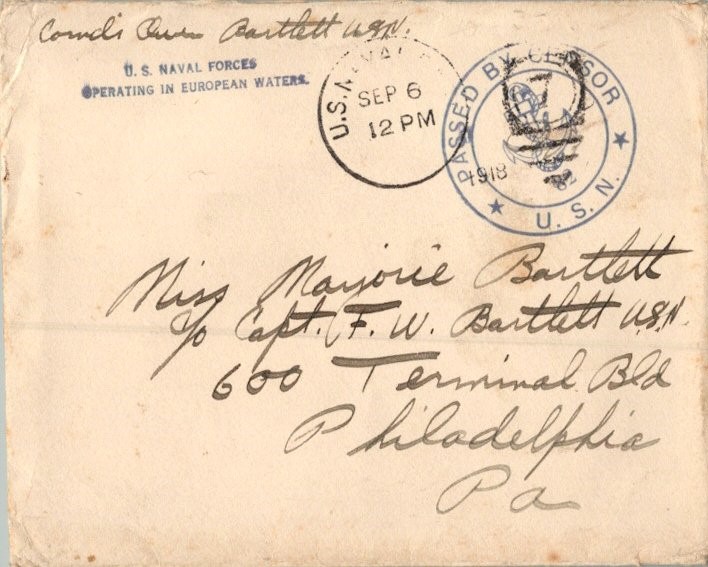 Comd'r Owen Bartlett U.S.N.
U. S. NAVAL FORCES
OPERATING IN EUROPEAN WATERS.
U.S. NAVAL
SEP 6
12 PM
1918
PASSED BY CENSOR
U. S. N.
Miss Marjorie Bartlett
c/o Capt. F. W. Bartlett U.S.N.
600 Terminal Bld
Philadelphia
Pa